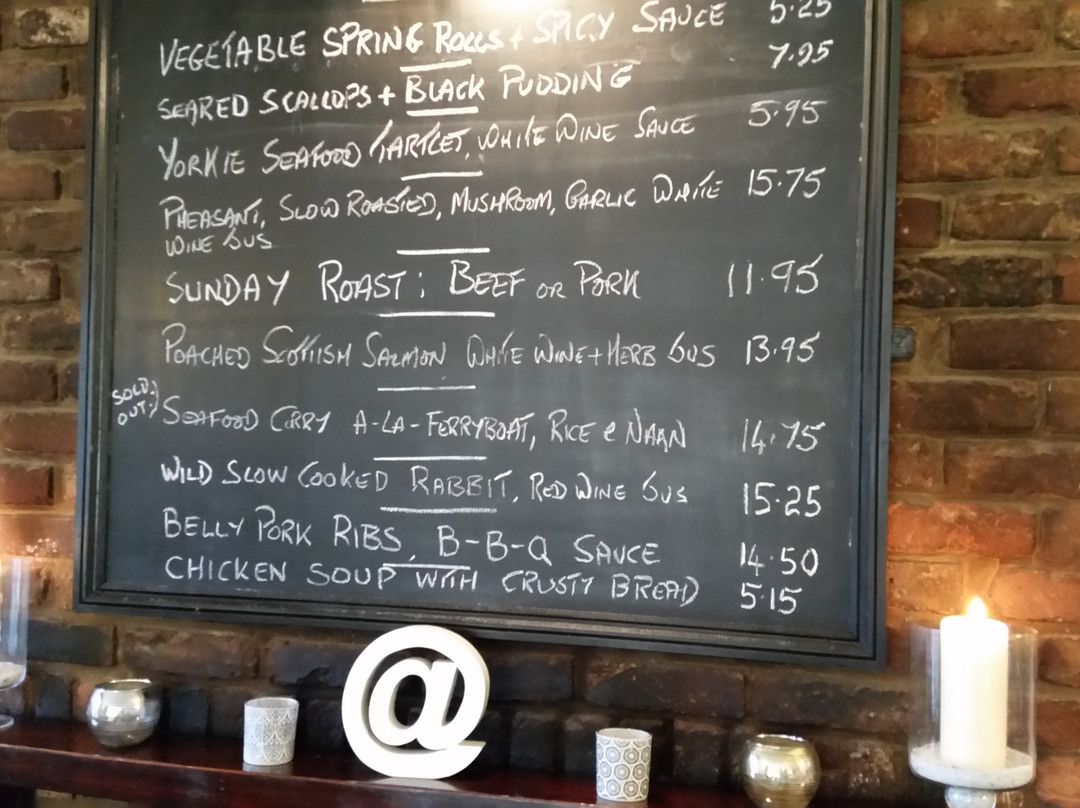 VEGETABLE SPRING ROLLS + SPICY SAUCE 5.25
SEARED SCALLOPS + BLACK PUDDING 7.95
YORKIE SEAFOOD TARTLET, WHITE WINE SAUCE 5.95
PHEASANT, SLOW ROASTED, MUSHROOM, GARLIC WHITE 15.75
WINE JUS
SUNDAY ROAST: BEEF OR PORK 11.95
POACHED SCOTTISH SALMON WHITE WINE + HERB JUS 13.95
SOLD
OUT
SEAFOOD CURRY A-LA-FERRYBOAT, RICE & NAAN 14.75
WILD SLOW COOKED RABBIT, RED WINE JUS 15.25
BELLY PORK RIBS, B-B-Q SAUCE 14.50
CHICKEN SOUP WITH CRUSTY BREAD 5.15
@